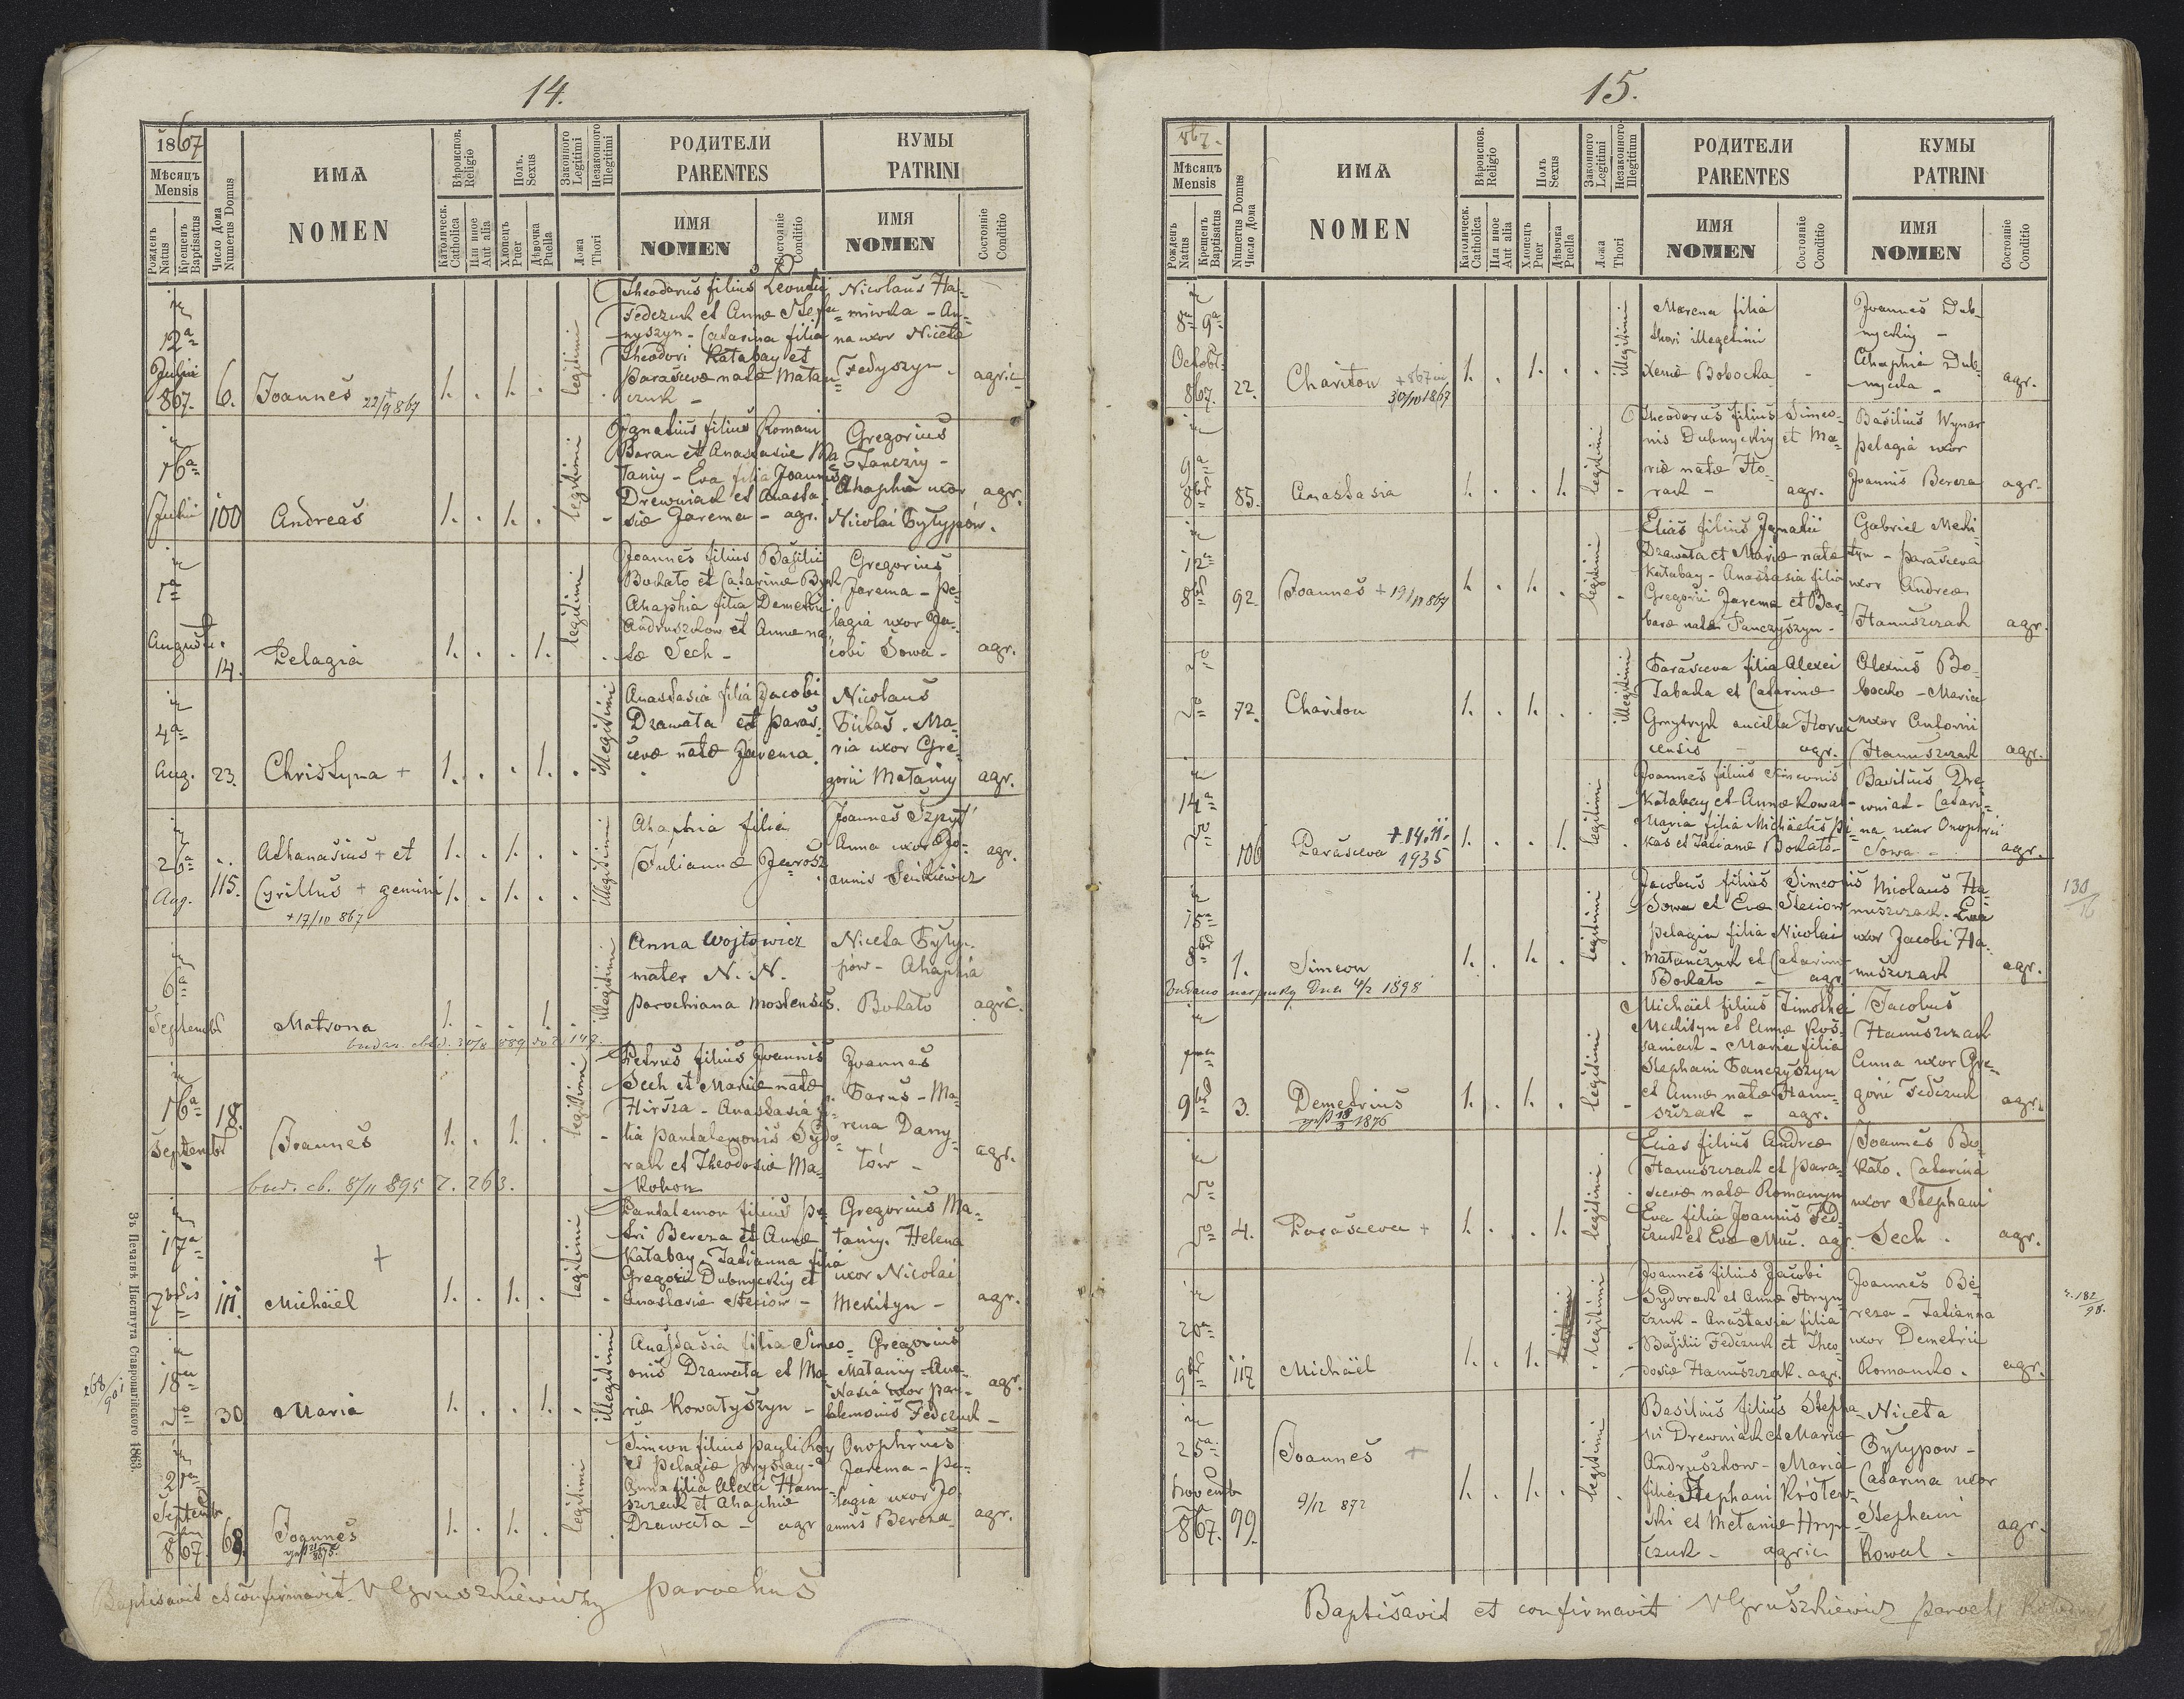 14.
1867
Мѣсяцъ
Mensis
Рожденъ
Natus
Крещенъ
Baptisatus
Число Дома
Numerus Domus
ИМѦ
NOMEN
Вѣроиспов.
Religio
Католическ.
Catholica
Или иное
Aut alia
Полъ.
Sexus
Хлопецъ
Puer
Дѣвочка
Puella
Законного
Legitimi
Незаконного
Illegitimi
Ложа
Thori
РОДИТЕЛИ
PARENTES
ИМЯ
NOMEN
Состояніе
Conditio
КУМЫ
PATRINI
ИМЯ
NOMEN
Состояніе
Conditio
12a
Julii
867. 6. Joannes + 22/9 867 1. . 1. . legitimi
Theodorus filius Leontii
Fedczuk et Annæ Stepa=
nyszyn - Catarina filia
Theodori Katabay et
Parascevæ natæ Matan=
czuk -
Nicolaus Ha=
miwka - An=
na uxor Nicetæ
Fedyszyn - agric
16a
Julii 100 Andreas 1. . 1. . legitimi
Ignatius filius Romani
Baran et Anastasiæ Ma
taniy - Eva filia Joannis
Drewniak et Anasta
siæ Jarema - agr.
Gregorius
Tancziy -
Ahaphia uxor
Nicolai Pyłypów. agr.
1a
Augusti. 14. Pelagia 1. . . 1. legitimi
Joannes filius Basilii
Bokało et Catarinæ Byk
Ahaphia filia Demetrii
Andruszkow et Annæ na
tæ Sech -
Gregorius
Jarema - Pe=
lagia uxor Ja=
cobi Sowa - agr.
4a
Aug. 23. Christyna + 1. . . 1. . illegitimi
Anastasia filia Jacobi
Drawata et Paras=
cevæ natæ Jarema.
Nicolaus
Bibas. Ma=
ria uxor Gre=
gorii Mataniy agr.
26a
Aug. 115. Athanasius + et 1. . 1. . .
Cyrillus + gemini 1. . 1. . . illegitimi
+17/10 867
Ahaphia filia
Julianna Jarosz
Joannes Szpyt
Anna uxor Jo=
annis Senkiewicz agr.
6a
Septembr Matrona 1. . . 1. . illegitimi
Anna Wojtowicz
mater N. N.
parochiana Mostensis.
Niceta Pyłyp=
pów - Ahaphia
Bokało agric.
16a
Septembr 18. Joannes 1. . 1. . legitimi
Petrus filius Joannis
Sech et Mariæ natæ
Hirsza - Anastasia fi=
lia Pantalemonis Sydo=
rak et Theodosiæ Ma=
kohon
Joannes
Barus - Ma=
rena Dany=
łów - agr.
17a
7bris 111. Michäel + 1. . 1. . legitimi
Pantalemon filius Pe=
tri Bereza et Annæ
Katabay - Tatianna filia
Gregorii Dubnyckiy et
Anastasiæ Steciów -
Gregorius Ma=
taniy. Helena
uxor Nicolai
Mekityn - agr.
18a
30 Maria 1. . . 1. . illegitimi
Anastasia filia Sime=
onis Drawata et Ma=
riæ Kowałyszyn -
Gregorius
Mataniy - Ana=
stasia uxor Pan=
talemonis Fedczuk - agr.
21a
Septembr
867. 68. Joannes 1. . 1. . legitimi
Simeon filius Pauli Koy
et Pelagiæ Prystay -
Anna filia Alexii Hanu=
szczak et Ahaphiæ
Drawata - agr
Onophrius
Jarema - Pe=
lagia uxor Jo=
annis Bereza agr.
Baptisavit et confirmavit VGruszkiewicz parochus
Зъ Печатнѣ Института Ставропигійского 1863.
15.
867.
Мѣсяцъ
Mensis
Рожденъ
Natus
Крещенъ
Baptisatus
Numerus Domus
Число Дома
ИМѦ
NOMEN
Вѣроиспов.
Religio
Католическ.
Catholica
Или иное
Aut alia
Полъ
Sexus
Хлопецъ
Puer
Дѣвочка
Puella
Законного
Legitimi
Незаконного
Illegitimum
Ложа
Thori
РОДИТЕЛИ
PARENTES
ИМЯ
NOMEN
Состояніе
Conditio
КУМЫ
PATRINI
ИМЯ
NOMEN
Состояніе
Conditio
8a 9a
Octobr.
867. 22. Chariton 30/10 1867 1. . 1. . . illegitimi
Marena filia
thori illegetimi
Xeniæ Bobocha
Joannes Dub=
nyckiy -
Ahaphia Dub=
nycka - agr.
9a
8br 85. Anastasia 1. . . 1. legitimi
Theodorus filius Simeo=
nis Dubnyckiy et Ma=
riæ natæ Ho=
rak - agr.
Basilius Wynar
Pelagia uxor
Joannis Bereza agr.
12a
8br 92. Joannes + 19/11 867 1. . 1. . legitimi
Elias filius Ignatii
Drawata et Mariæ natæ
Katabay - Anastasia filia
Gregorii Jarema et Bar=
baræ natæ Panczyszyn -
Gabriel Meki=
tyn - Parasceva
uxor Andreæ
Hanuszczak agr.
72. Chariton 1. . 1. . . illegitimi
Parasceva filia Alexei
Tabaka et Catarinæ
Gmytryk ancilla
- agr.
Alexius Bo=
bocko - Maria
uxor Antonii
Hanuszczak agr.
14a
106 Parasceva +14.11.1935 1. . . 1. legitimi
Joannes filius Simeonis
Katabay et Annæ Kowal -
Maria filia Michäelis Pi=
kas et Tatianæ Bokało -
Basilius Dre=
wniak - Catari=
na uxor Onophrii
Sowa - agr.
15a
8br 1. Simeon 1. . 1. . legitimi
4/2 1898
Jacobus filius Simeonis
Sowa et Evæ Steciow
Pelagia filia Nicolai
Matanczuk et Catarinæ
Bokało - agr
Nicolaus Ha=
nuszczak. Eva
uxor Jacobi Ha=
nuszczak agr.
9br 3. Demetrius 1. . 1. . legitimi
Michäel filius Timothei
Mekityn et Annæ Kos=
saniak - Maria filia
Stephani Panczyszyn
et Annæ natæ Hanu=
szczak - agr.
Jacobus
Hanuszczak
Anna uxor Gre=
gorii Fedczuk agr.
4. Parasceva + 1. . . 1. legitimi
Elias filius Andreæ
Hanuszczak et Para=
scevæ natæ Romanyn
Eva filia Joannis Fed=
czuk et Evæ . agr.
Joannes Bo=
kało. Catarina
uxor Stephani
Sech. agr.
20a
9br 117 Michäel 1. . 1. . legitimi
Joannes filius Jacobi
Sydorak et Annæ Hryn=
czuk - Anastasia filia
Basilii Fedczuk et Theo=
dosiæ Hanuszczak. agr.
Joannes Be=
reza - Tatianna
uxor Demetrii
Romanko. agr.
25a
Novemb
867. 99. Joannes + 9/12 872 1. . 1. . legitimi
Basilius filius Stepha=
ni Drewniak et Mariæ
Andruszkow - Maria
filia Stephani Krótew=
ski et Melaniæ Hryn=
czuk - agric
Niceta
Pyłypow -
Catarina uxor
Stephani
Kowal. agr.
Baptisavit et confirmavit VGruszkiewicz paroch